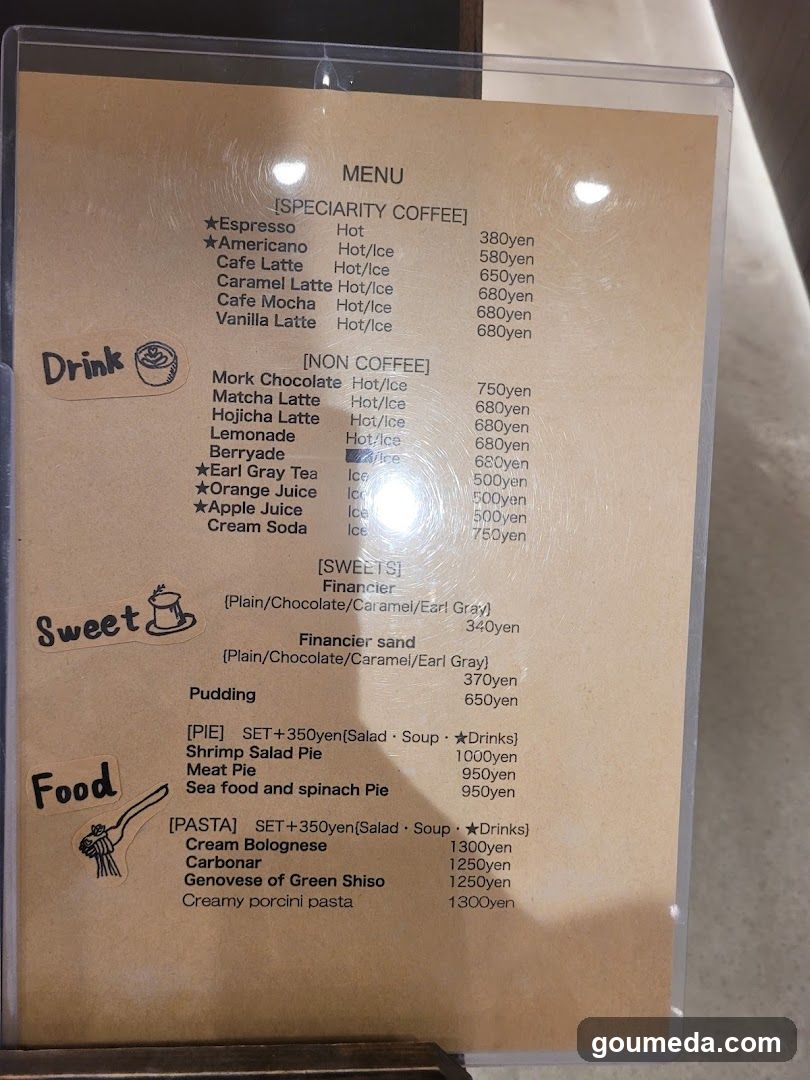 MENU
[SPECIARITY COFFEE]
★Espresso Hot 380yen
★Americano Hot/Ice 580yen
Cafe Latte Hot/Ice 650yen
Caramel Latte Hot/Ice 680yen
Cafe Mocha Hot/Ice 680yen
Vanilla Latte Hot/Ice 680yen
Drink
[NON COFFEE]
Mork Chocolate Hot/Ice 750yen
Matcha Latte Hot/Ice 680yen
Hojicha Latte Hot/Ice 680yen
Lemonade Hot/Ice 680yen
Berryade /Ice 680yen
★Earl Gray Tea Ice 500yen
★Orange Juice Ice 500yen
★Apple Juice Ice 500yen
Cream Soda Ice 750yen
Sweet
[SWEETS]
Financier
{Plain/Chocolate/Caramel/Earl Gray}
340yen
Financier sand
{Plain/Chocolate/Caramel/Earl Gray}
370yen
Pudding 650yen
Food
[PIE] SET+350yen{Salad・Soup・★Drinks}
Shrimp Salad Pie 1000yen
Meat Pie 950yen
Sea food and spinach Pie 950yen
[PASTA] SET+350yen{Salad・Soup・★Drinks}
Cream Bolognese 1300yen
Carbonar 1250yen
Genovese of Green Shiso 1250yen
Creamy porcini pasta 1300yen
goumeda.com